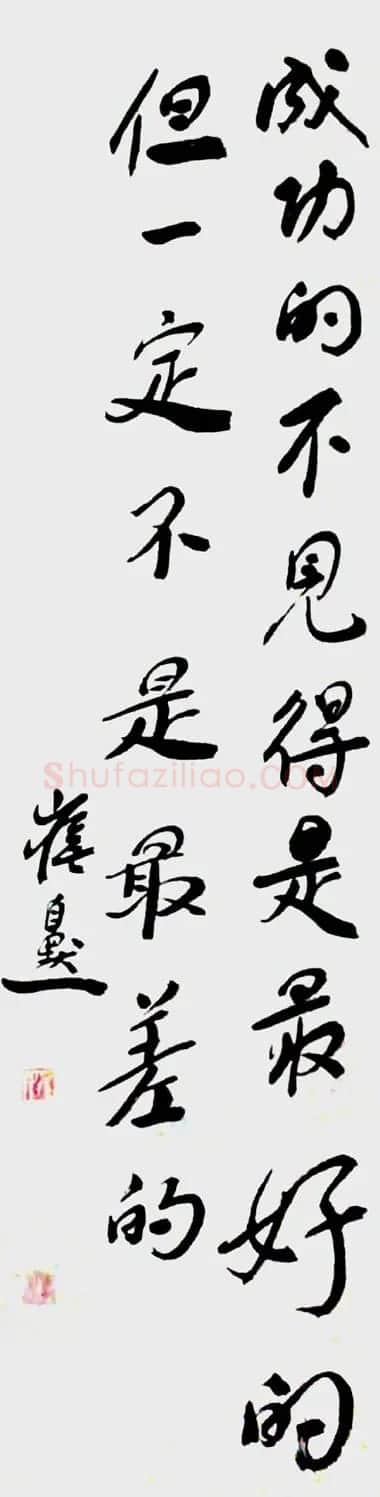 成功的不見得是最好的
但一定不是最差的
崔自默
Shufaziliao.COM